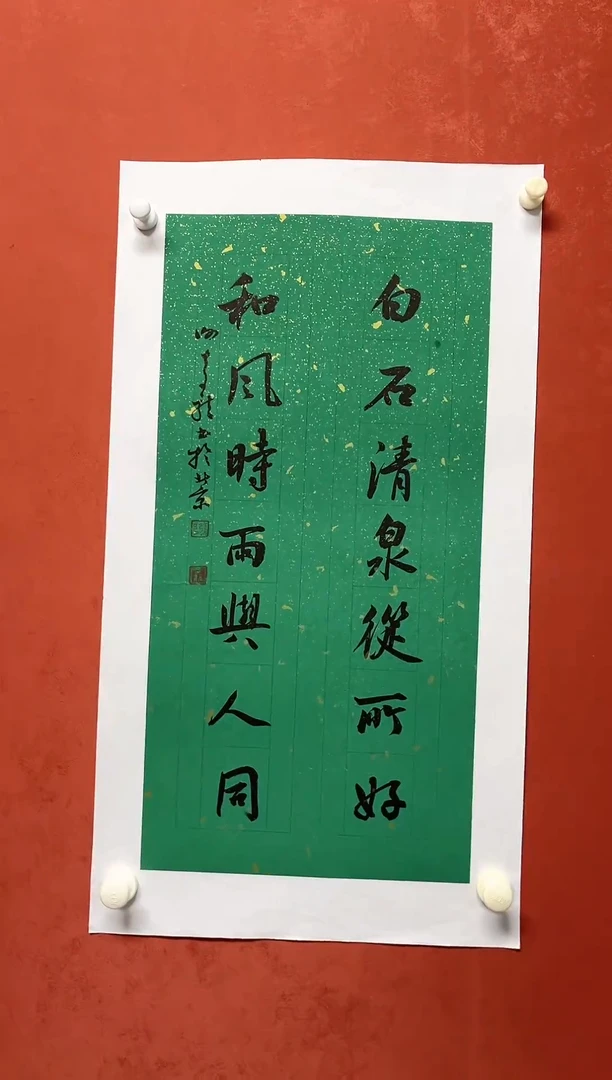 白石清泉從所好
和風時雨與人同
書於北京